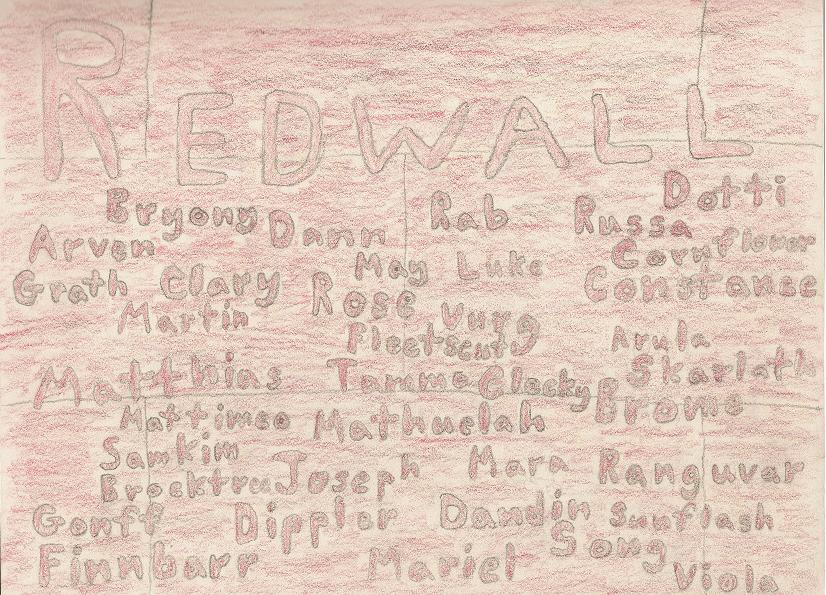 REDWALL
Bryony Dann Rab Russa Dotti
Arven May Luke Cornflower
Grath Clary Rose Constance
Martin Vurg
Fleetscut Arula
Matthias Tammo Glocky Skarlath
Mattimeo Mathuelah Brome
Samkim Joseph Mara Ranguvar
Brocktree
Gonff Dippler Dandin Sunflash
Finnbarr Mariel Song
Viola